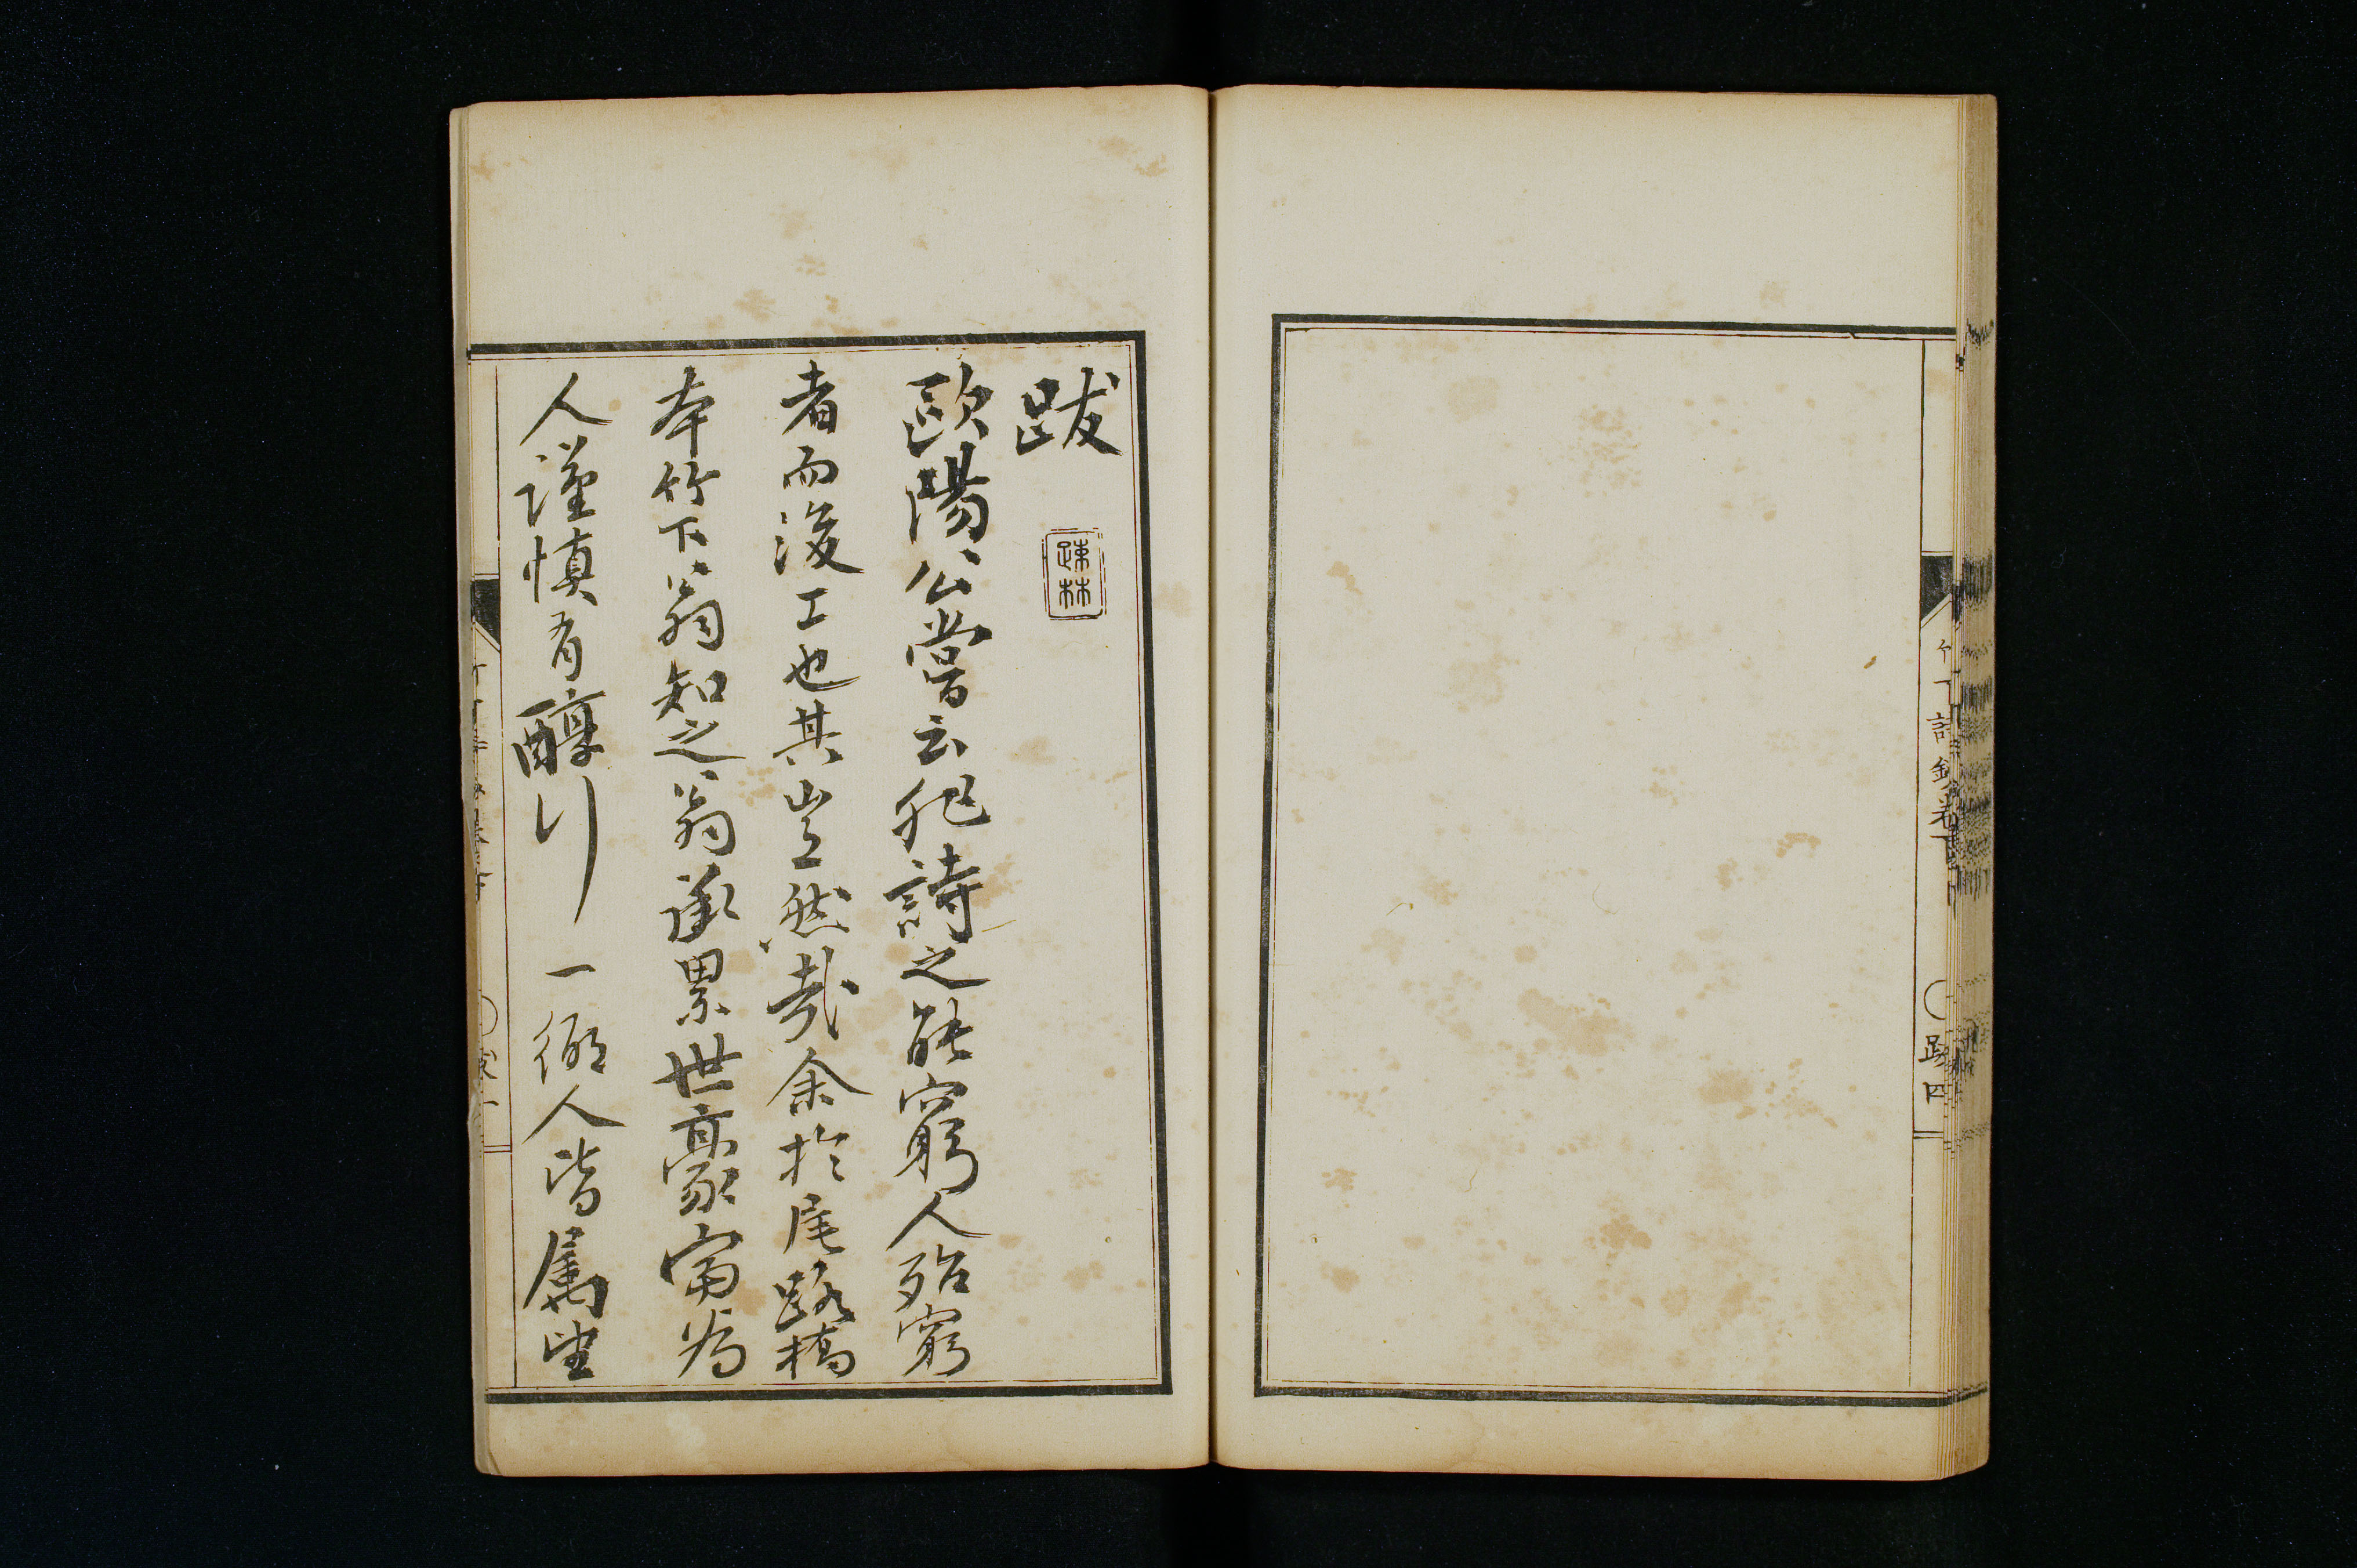 竹下詩鈔卷下 〇跋四
跋
疎林
歐陽公嘗云非詩之能窮人殆窮
者而後工也其豈然哉余於尾路橋
本竹下翁知之翁承累世豪富為
人謹慎有醇行一鄉人皆属望